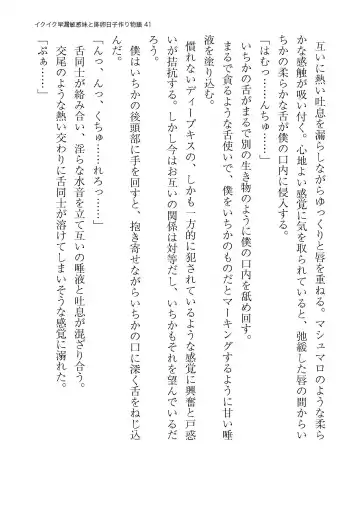 イクイク早漏敏感妹と排卵日子作り物語 41
互いに熱い吐息を漏らしながらゆっくりと唇を重ねる。マシュマロのような柔ら
かな感触が吸い付く。心地よい感覚に気を取られていると、弛緩した唇の間からい
ちかの柔らかな舌が僕の口内に侵入する。
「はむっ……んちゅ……」
いちかの舌がまるで別の生き物のように僕の口内を舐め回す。
まるで貪るような舌使いで、僕をいちかのものだとマーキングするように甘い唾
液を塗り込む。
慣れないディープキスの、しかも一方的に犯されているような感覚に興奮と戸惑
いが拮抗する。しかし今はお互いの関係は対等だし、いちかもそれを望んでいるだ
ろう。
僕はいちかの後頭部に手を回すと、抱き寄せながらいちかの口に深く舌をねじ込
んだ。
「んっ、んっ、くちゅ……れろっ……」
舌同士が絡み合い、淫らな水音を立て互いの唾液と吐息が混ざり合う。
交尾のような熱い交わりに舌同士が溶けてしまいそうな感覚に溺れた。
「ぷぁ……」